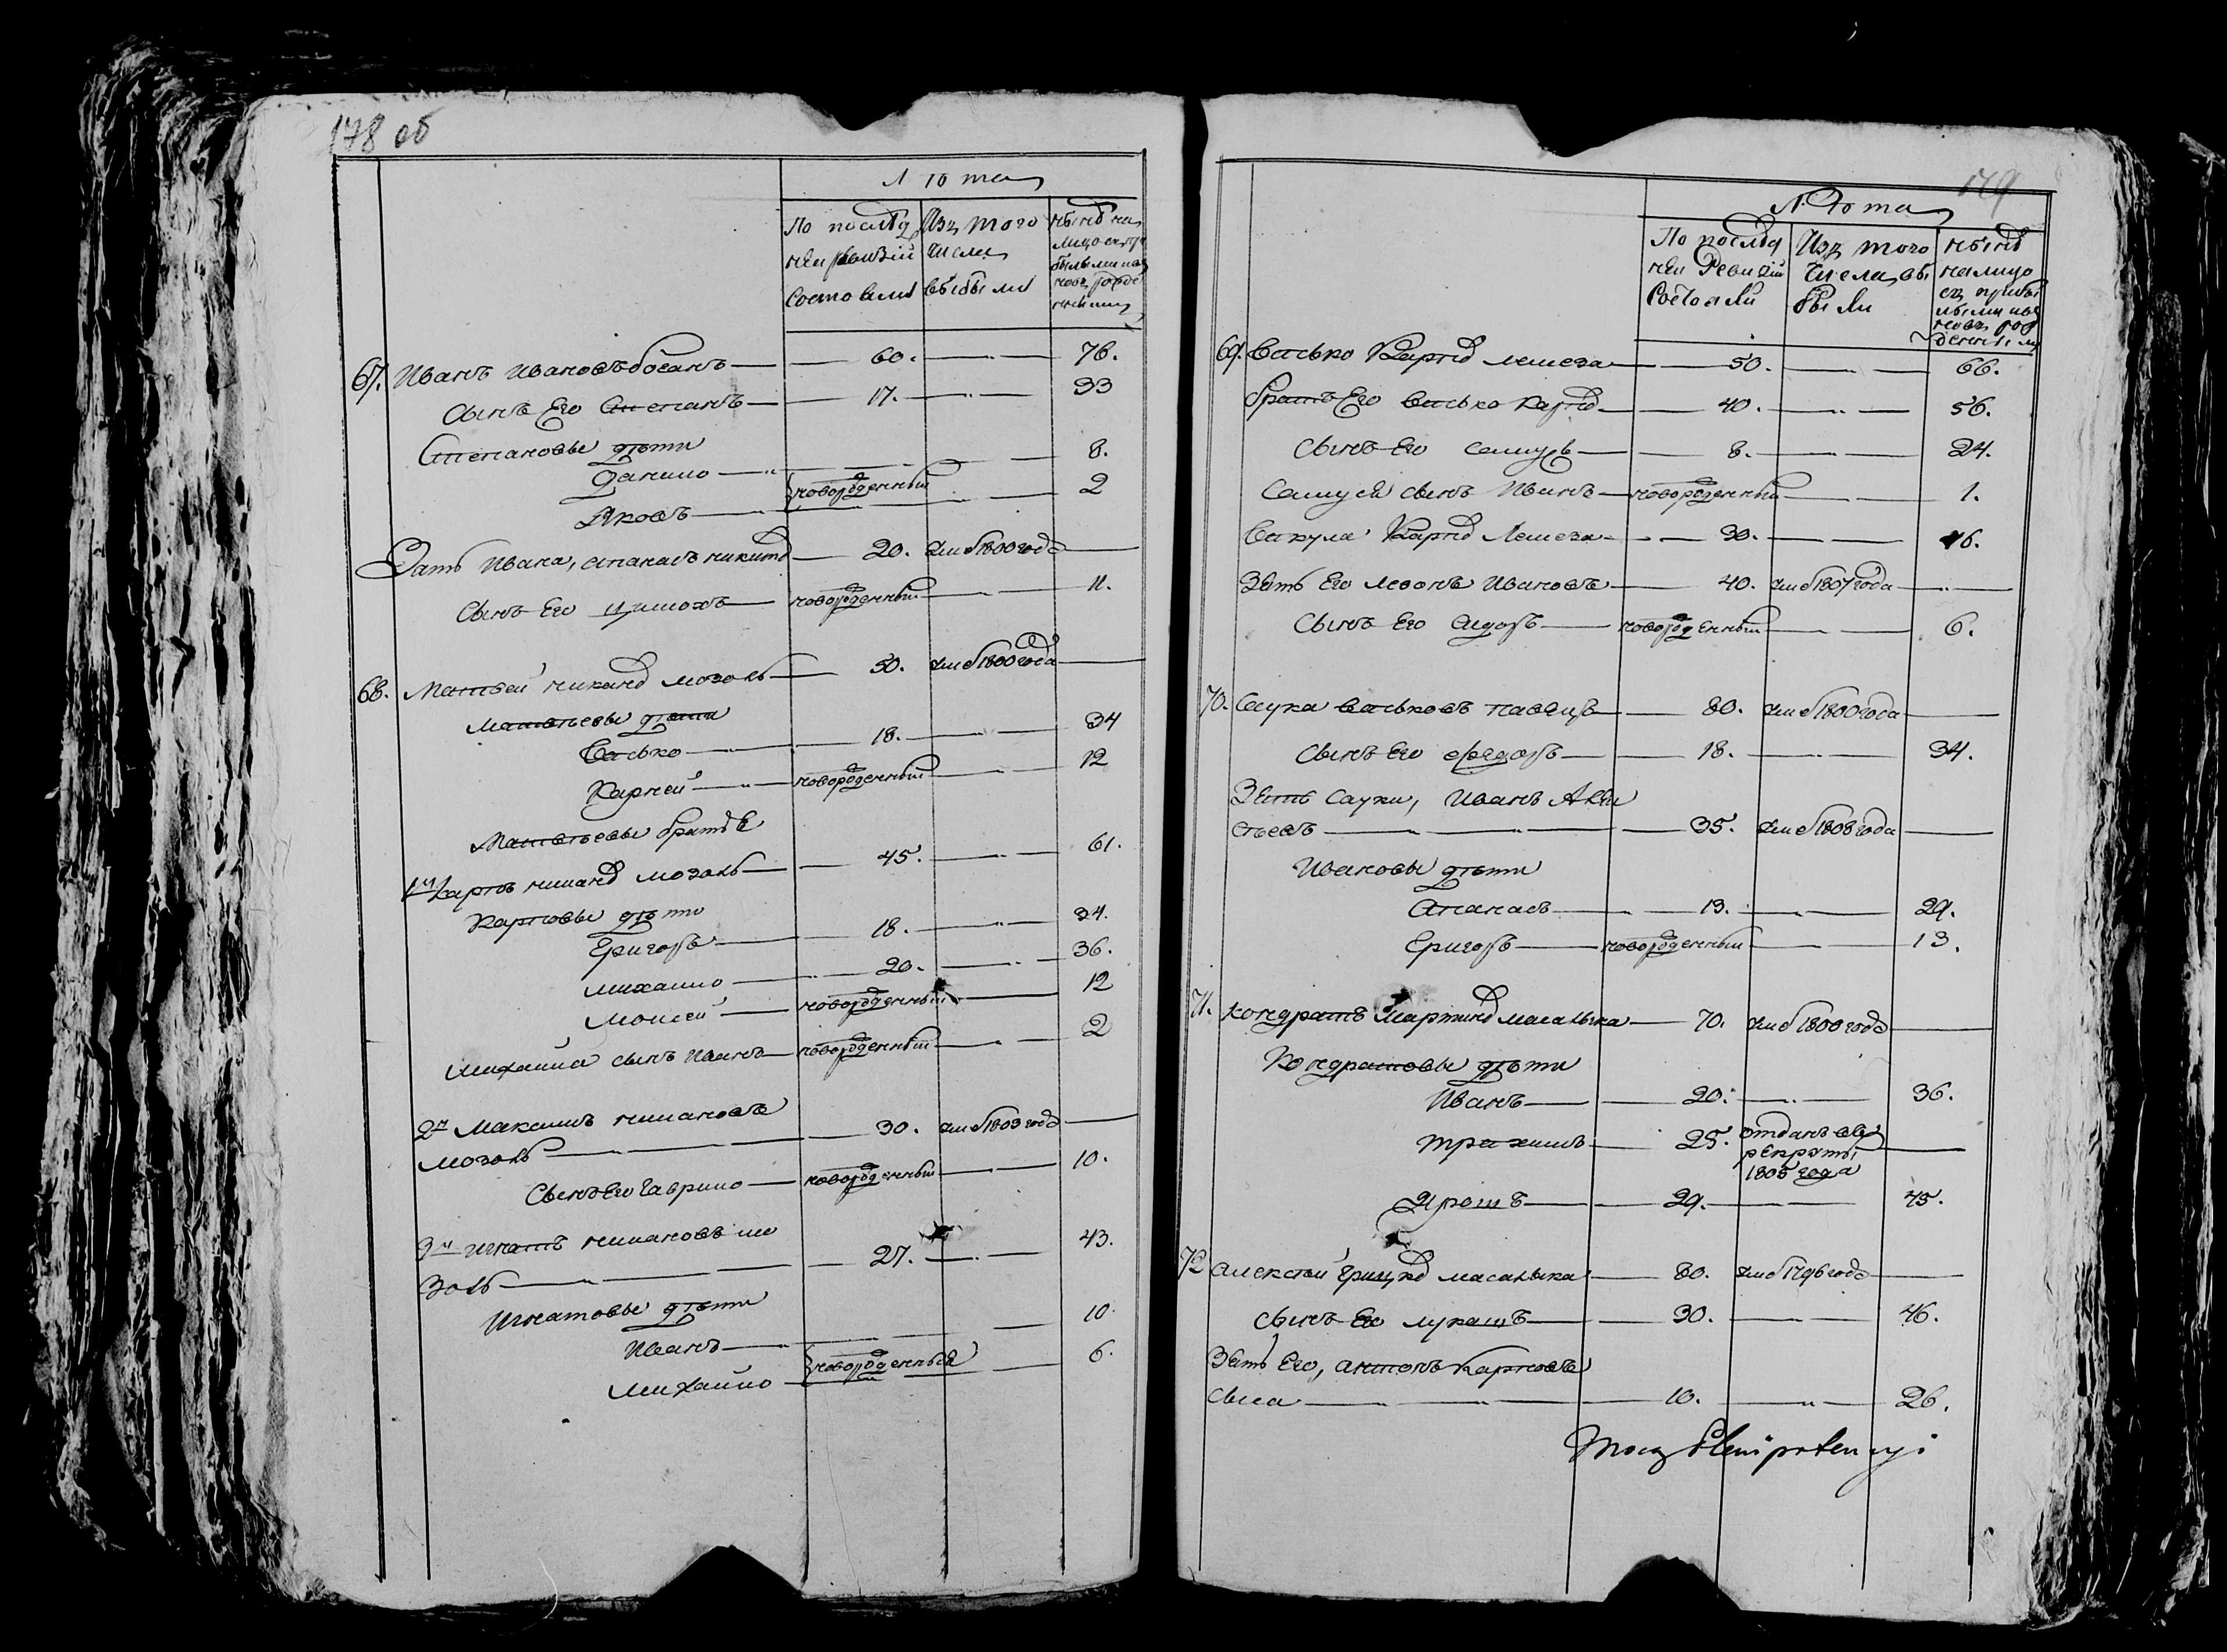 178 об
Лѣта
По послѣд Изъ того нынѣ на
ней ревизіи числа лицо съ при
былыми и
состояли выбыли новорожде
нными
67. Иванъ Ивановъ Боганъ 60. 76.
Сынъ Его Степанъ 17. 33
Степановы дѣти
Данило 8.
новорожденный
Яковъ 2
Зять Ивана, Апанасъ Никит 20. Ум: 1800 года
Сынъ Его Цимохъ новорожденный 11.
68. Матвей Никан Мозоль 50. Ум: 1800 года
Матвѣевы дѣти
Васько 18. 34
Карней новорожденный 12
Матвѣевы братья
1й Карпъ Мозоль 45. 61.
Карповы дѣти
Григоръ 18. 34.
Михайло 20. 36.
Мойсей новорожденный 12
Михайла сынъ Иванъ новорожденный 2
2й Максимъ
Мозоль 30. Ум: 1803 года
Сынъ Его Гаврило новорожденный 10.
3й Игнатъ Мо
золь 27. 43.
Игнатовы дѣти
Иванъ 10.
новорожденные
Михайло 6.
179
Лѣта
По послѣд Изъ того нынѣ
ней Ревизіи числа вы налицо
состояли были съ прибы
лыми и
новорож
денными
69. Васько Карпов Лемеза 50. 66.
братъ Его Васько Карпов 40. 56.
Сынъ Его Самусь 8. 24.
Самусей сынъ Иванъ новорожденный 1.
Вакула Карпов Лемеза 30. 46.
Зять Его Левонъ Ивановъ 40. Ум: 1807 года
Сынъ Его Сидоръ новорожденный 6.
70. Саука Васьковъ 80. Ум: 1800 года
Сынъ Его Федоръ 18. 34.
Зять Сауки, Иванъ Авси
евъ 35. Ум: 1808 года
Ивановы дѣти
Апанасъ 13. 29.
Григоръ новорожденный 13.
71. Кондратъ Мартинов Масалыка 70. Ум: 1800 года
Кондратовы дѣти
Иванъ 20. 36.
Трахимъ 25. отданъ въ
рекруты
1805 года
Ярошъ 29. 45.
72 Алексѣй Грицков Масалыка 80. Ум: 1796 года
Сынъ Его Лукашъ 30. 46.
Зять Его, Антонъ Карповъ
10. 26.
Plenipotencyi